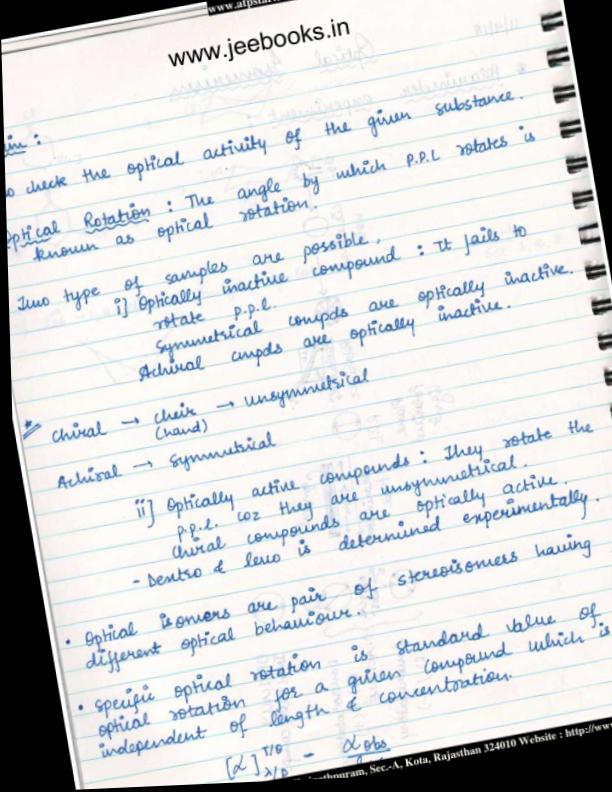 www.atpstar
www.jeebooks.in
aim :
to check the optical activity of the given substance.
Optical Rotation : The angle by which P.P.L rotates is
known as optical rotation.
Two type of samples are possible,
i] Optically inactive compound : It fails to
rotate p.p.l.
Symmetrical compds are optically inactive.
Achiral cmpds are optically inactive.
* Chiral → cheir → unsymmetrical
(hand)
Achiral → Symmetrical
ii] Optically active compounds : They rotate the
p.p.l. coz they are unsymmetrical.
Chiral compounds are optically active.
- Dextro & levo is determined experimentally.
• Optical isomers are pair of stereoisomers having
different optical behaviour.
• Specific optical rotation is standard value of
optical rotation for a given compound which is
independent of length & concentration.
[α] T/θ λ/D = α obs
Sec.-A, Kota, Rajasthan 324010 Website : http://ww